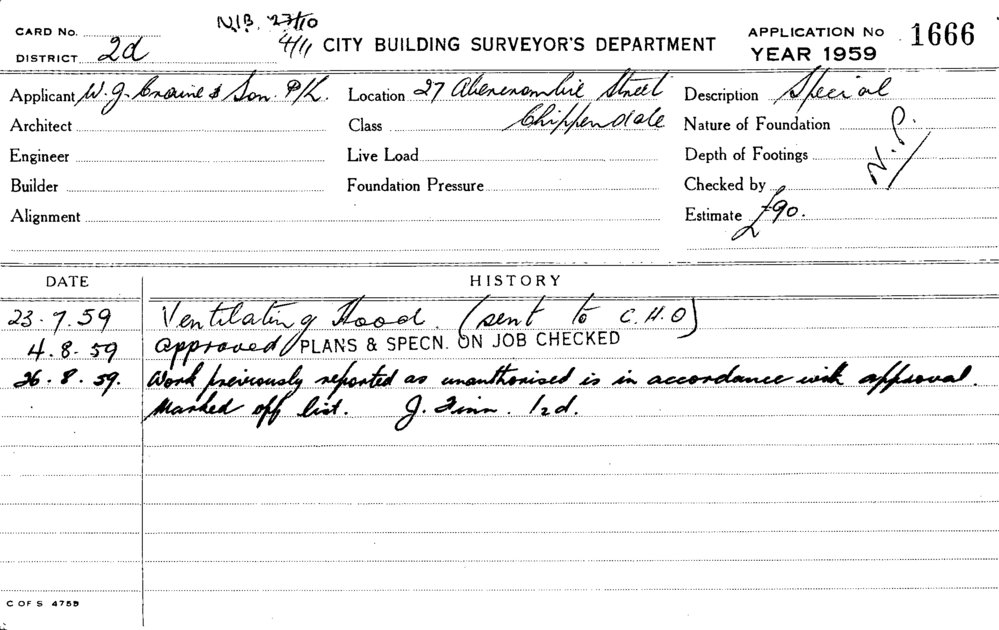 N.I.B. 27/10
CARD No.
4/11 CITY BUILDING SURVEYOR'S DEPARTMENT
APPLICATION No 1666
DISTRICT 2d
YEAR 1959
Applicant W. J. & Son. P/L. Location 27 Abercrombie Street Description Special
Architect Class Chippendale Nature of Foundation N.P.
Engineer Live Load Depth of Footings
Builder Foundation Pressure Checked by
Alignment Estimate £90.
DATE HISTORY
23.7.59 Ventilating Hood. (sent to C.H.O)
4.8.59 approved PLANS & SPECN. ON JOB CHECKED
26.8.59. Work previously reported as unauthorised is in accordance with approval.
Marked off list. J. Finn. 1/2d.
C OF S 4759